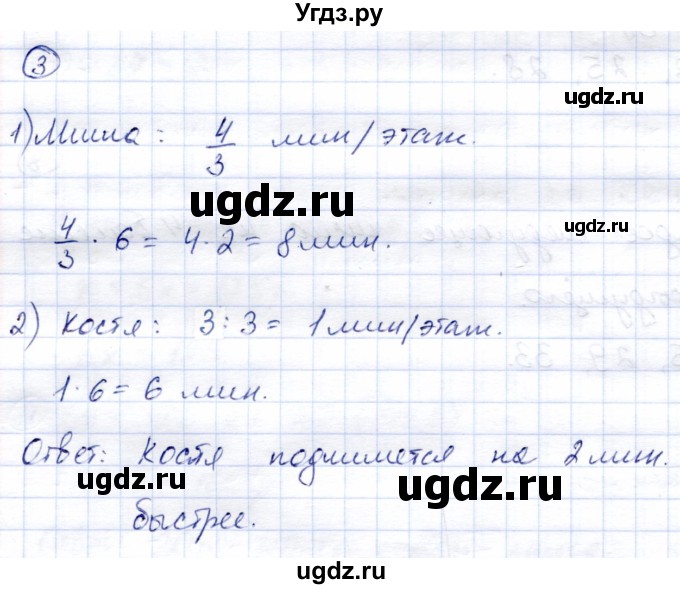 Угдз.ру
3
ugdz.ru
1) Миша: 4/3 мин/этаж.
ugdz.ru
ugdz.ru
4/3 · 6 = 4·2 = 8 мин.
2) Костя: 3:3 = 1 мин/этаж.
1·6 = 6 мин.
Ответ: Костя поднимется на 2 мин.
ugdz.ru
ugdz.ru
быстрее.
ugdz.ru